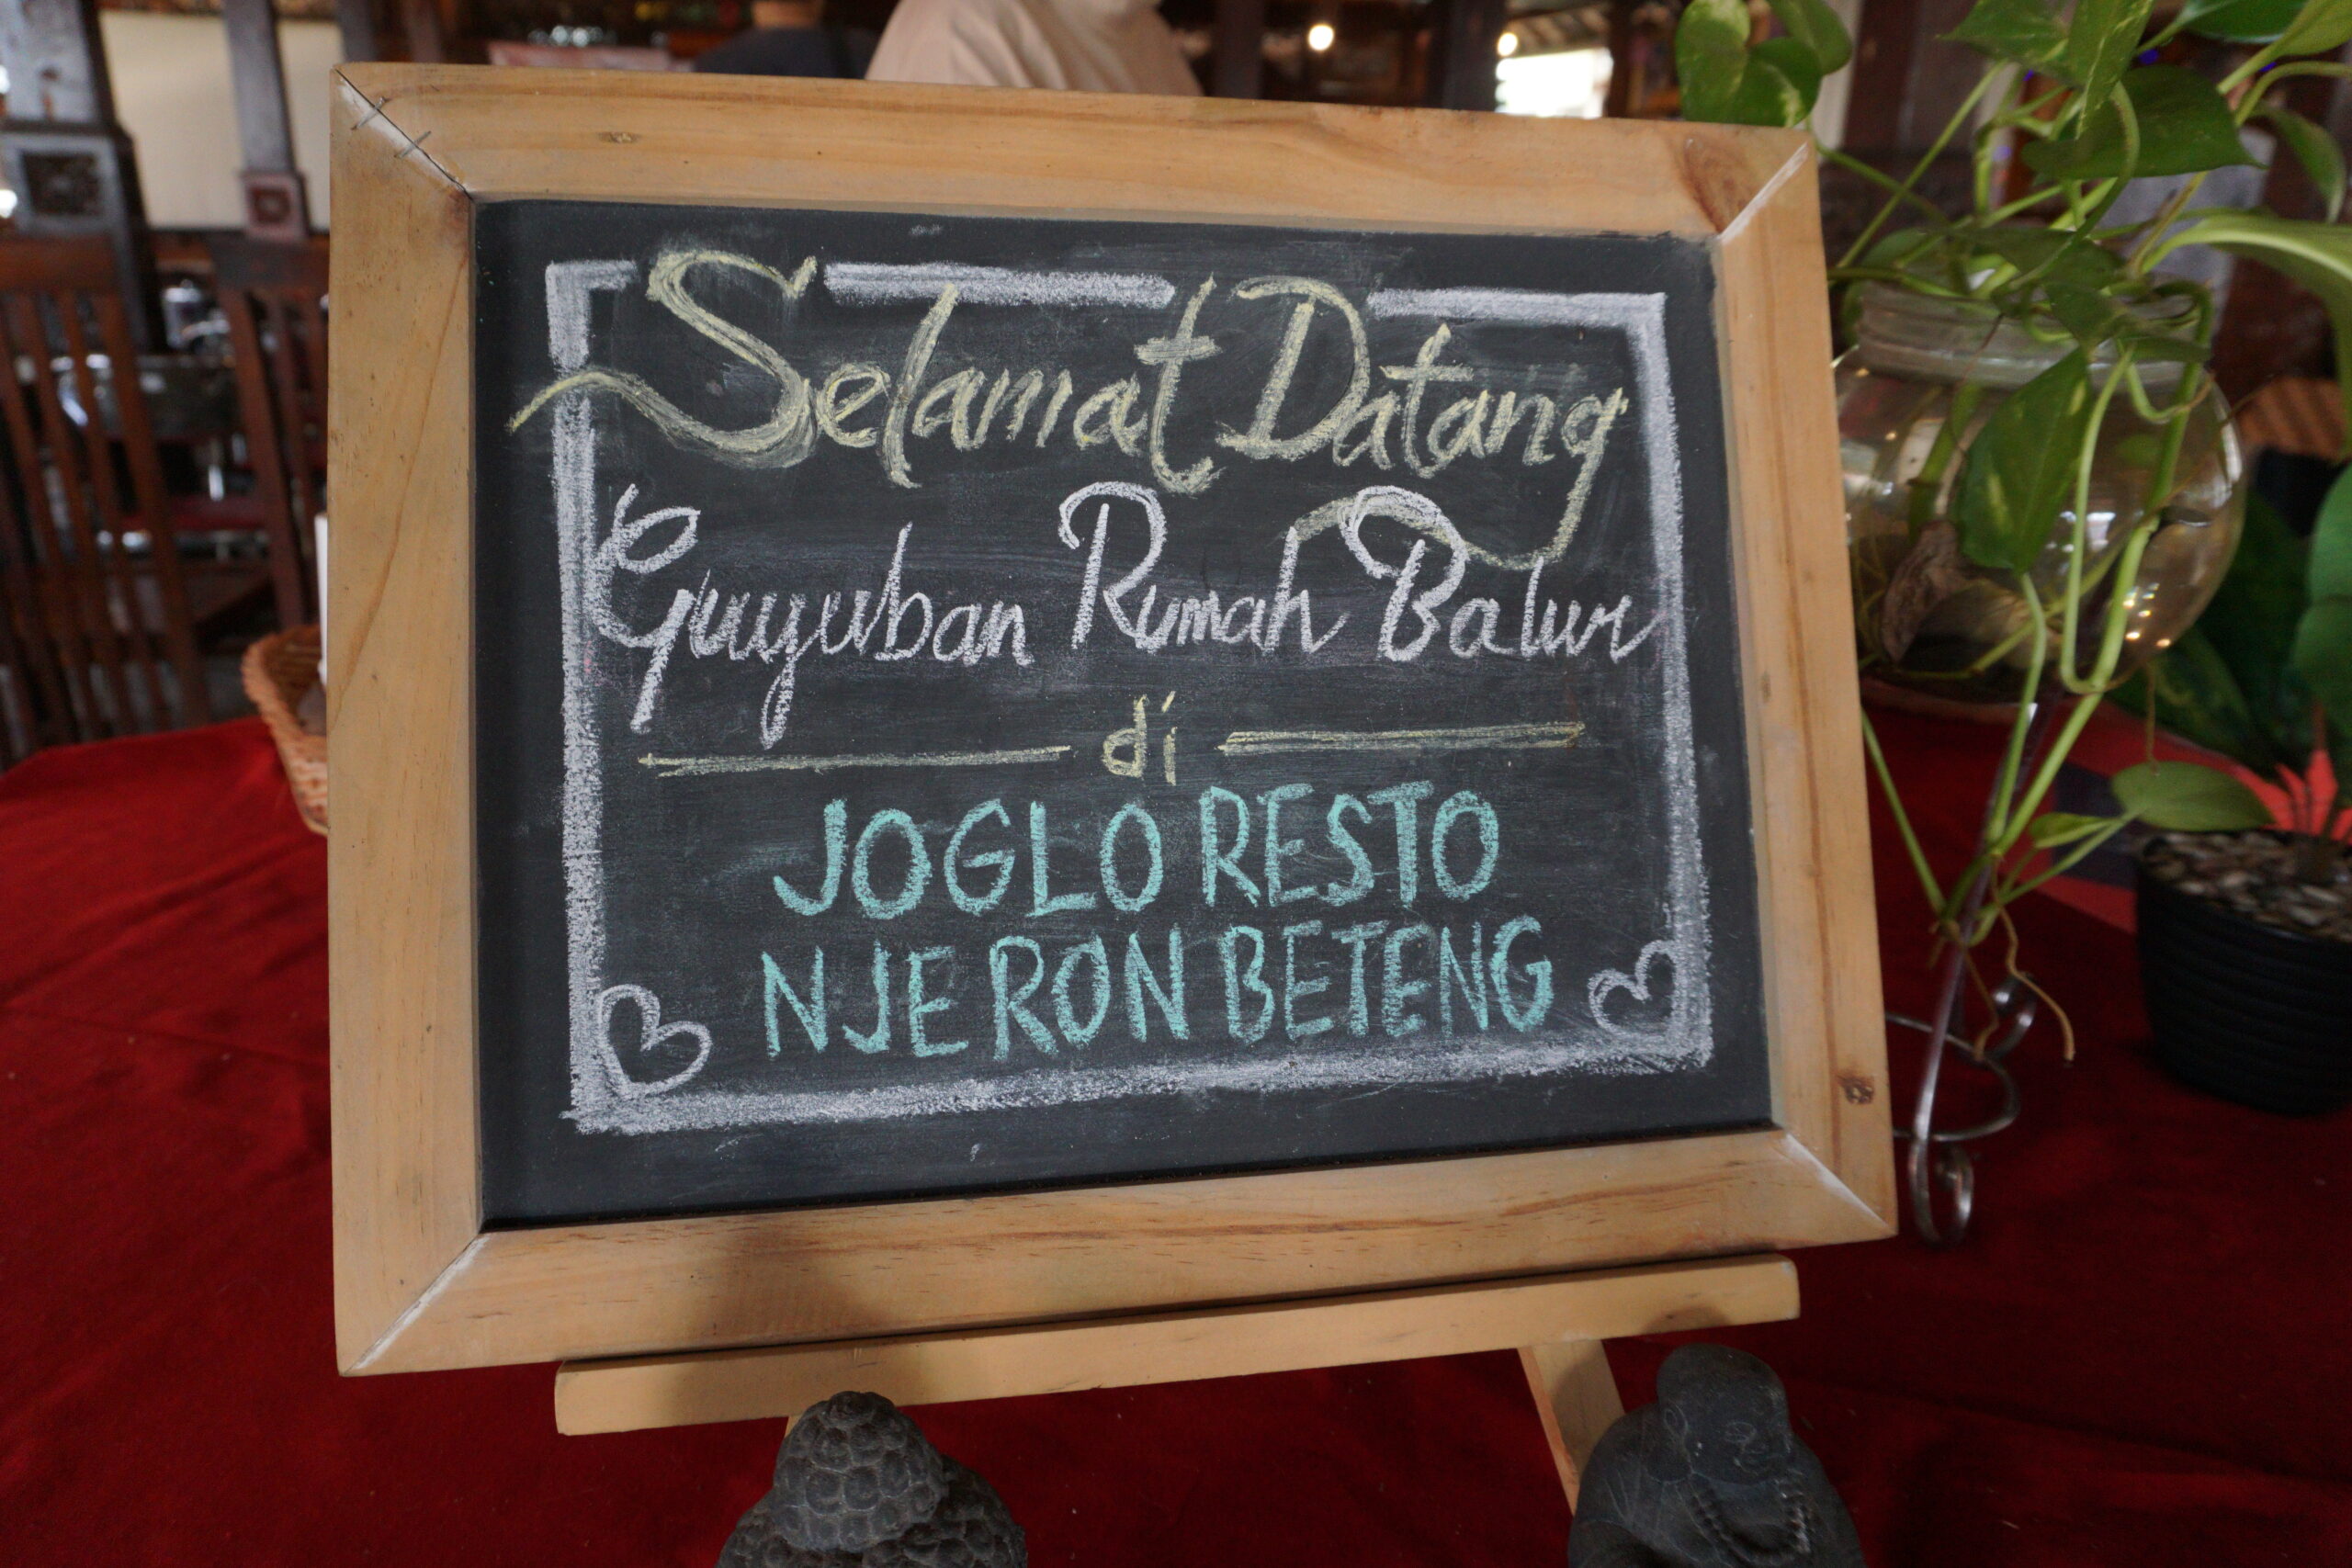 Selamat Datang
Guyuban Rumah Balur
di
JOGLO RESTO
NJERON BETENG